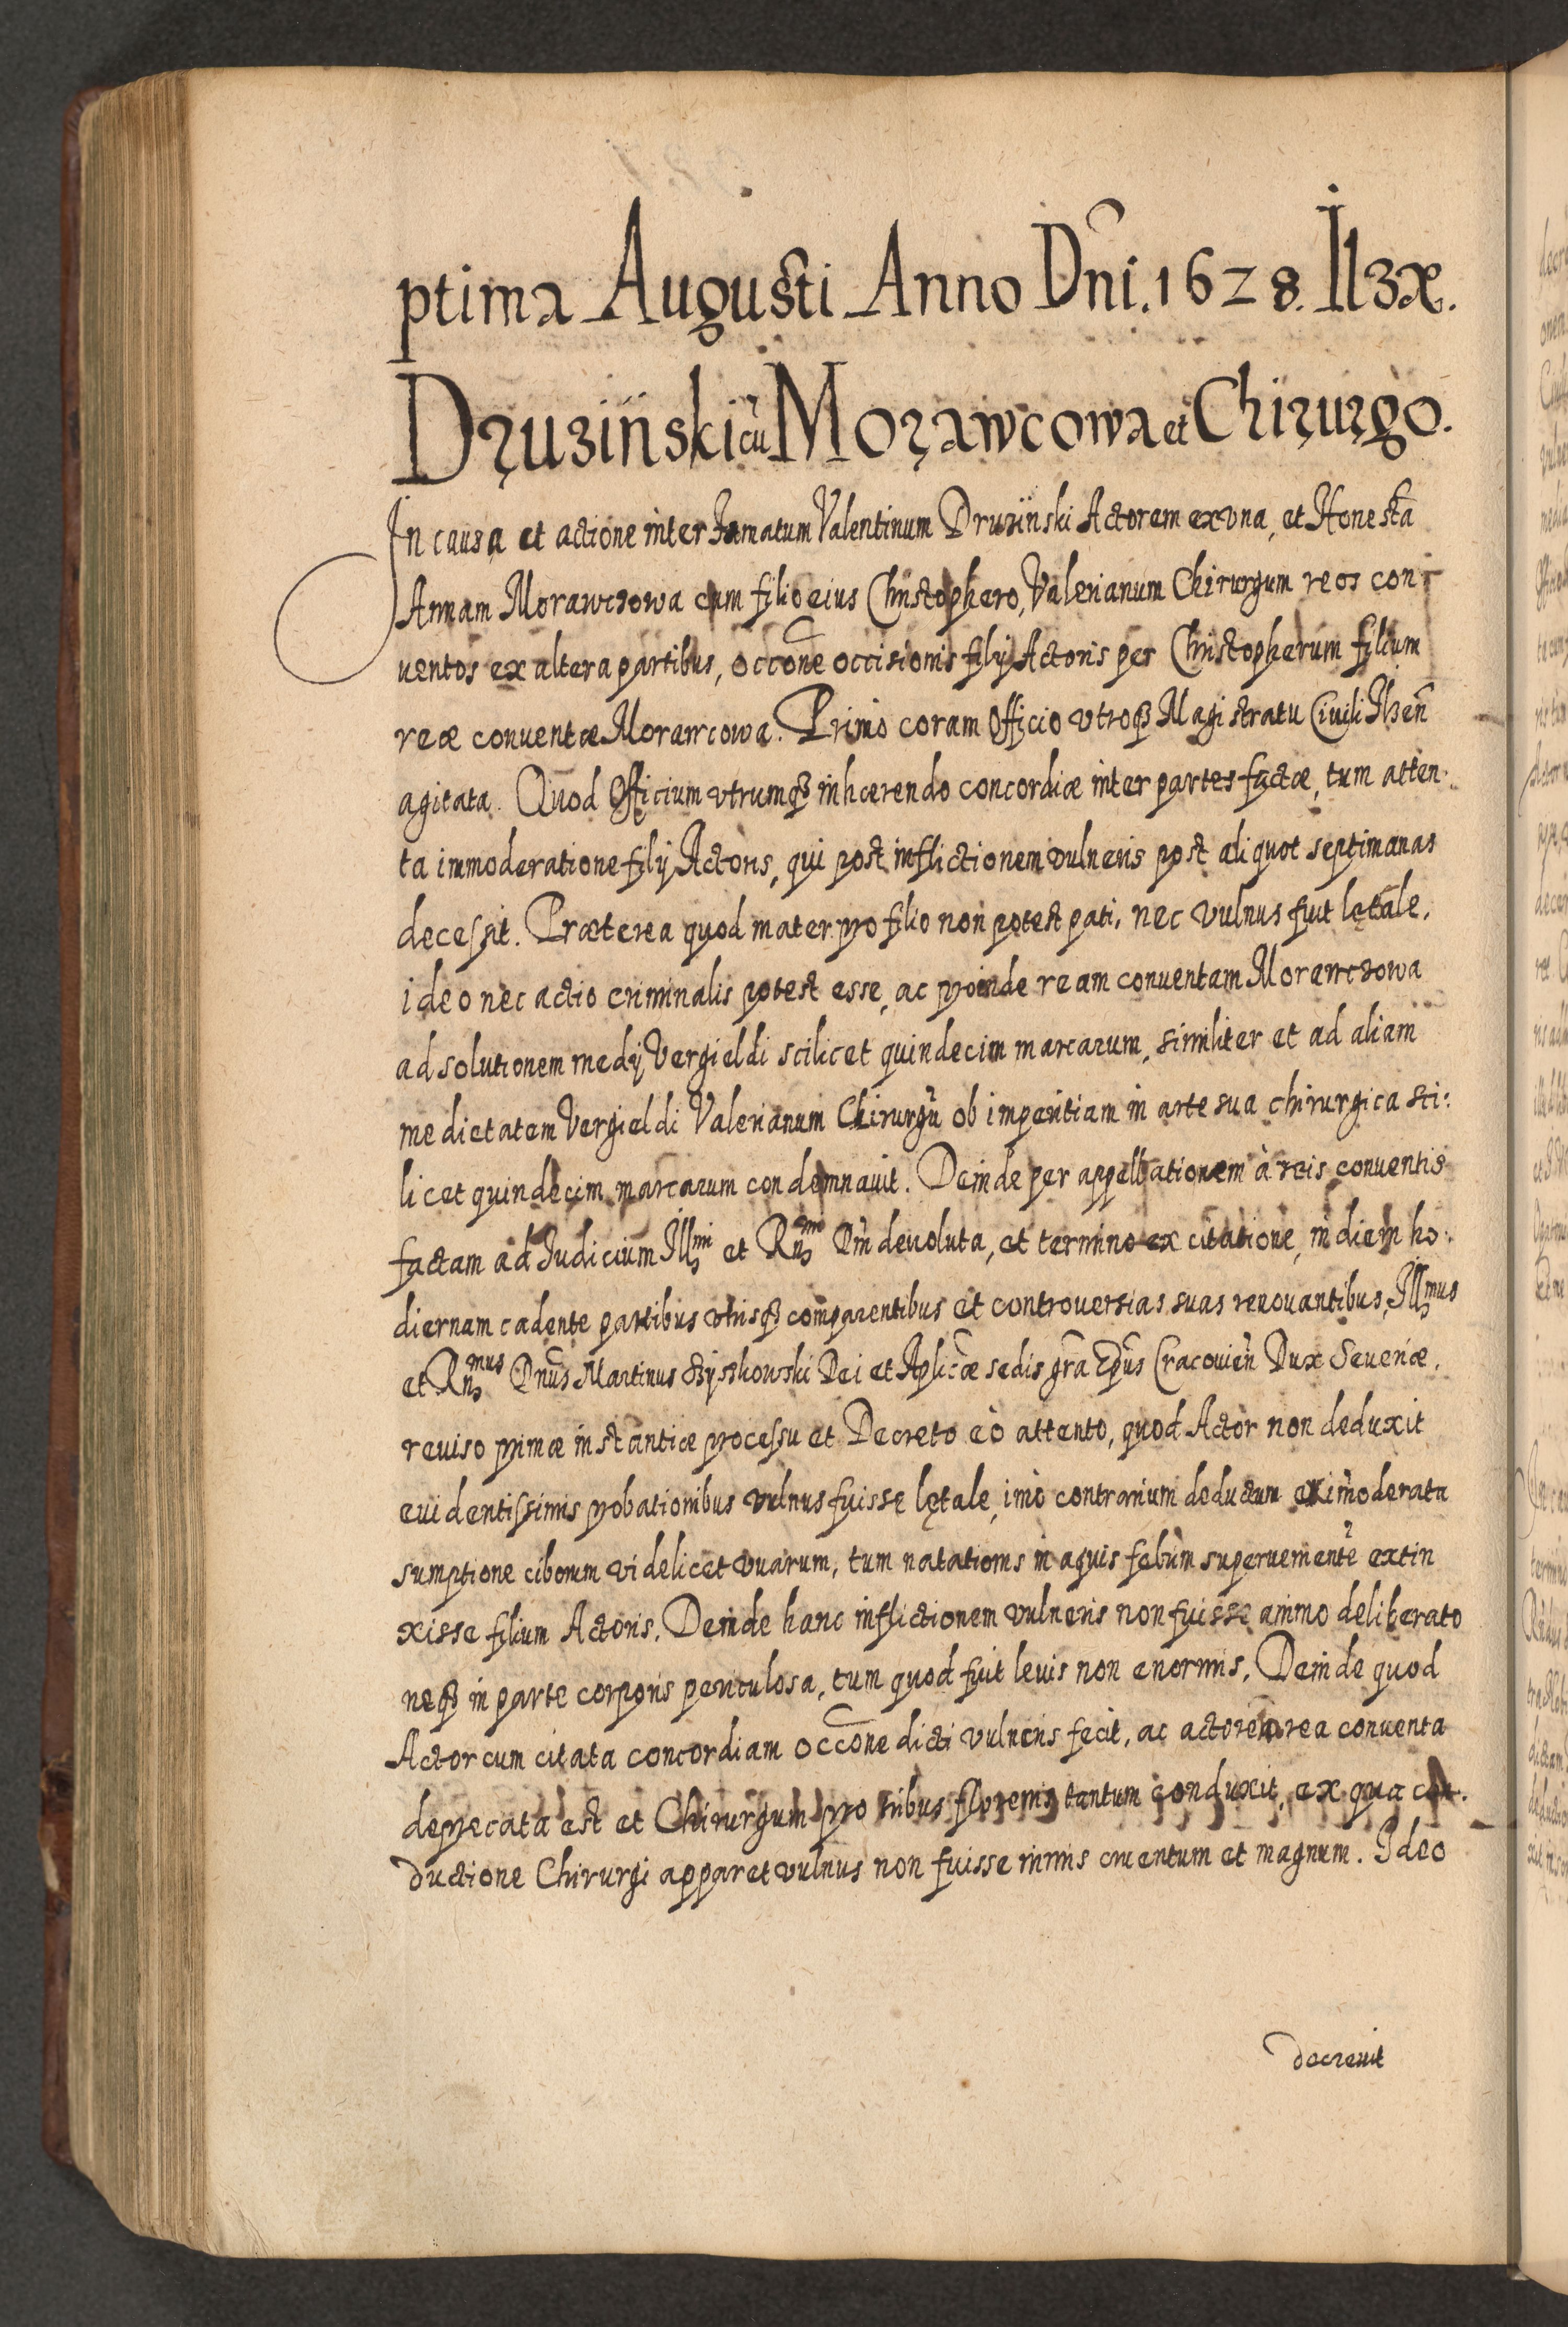 ptima Augusti Anno Dni. 1628. Ilzæ.
Druziński cū Morawcowa et Chirurgo.
In causa et actione inter Famatum Valentinum Druziinski Actorem ex vna, et Honesta
Annam Morawczowa cum filio eius Christophero, Valerianum Chirurgum reos con-
uentos ex altera partibus, occōne occisionis filij Actoris per Christopherum filium
reæ conuentæ Morawcowa. Primo coram Officio vtroq3 Magistratu Ciuili Ilzen
agitata. Quod Officium vtrumq3 inhærendo concordiæ inter partes factæ, tum atten-
ta immoderatione filij Actoris, qui post inflictionem vulneris post aliquot septimanas
decessit. Præterea quod mater pro filio non potest pati, nec vulnus fuit lętale,
ideo nec actio criminalis potest esse, ac proinde ream conuentam Morawczowa
ad solutionem medij Vergieldi scilicet quindecim marcarum, similiter et ad aliam
medietatem Vergieldi Valerianum Chirurgū ob imperitiam in arte sua chirurgica sci:
licet quindecim marcarum condemnauit. Deinde per appellationem à reis conuentis
factam ad Judicium Illmi et Rnmi Dni deuoluta, et termino ex citatione, in diem ho:
diernam cadente partibus vtrisq3 comparentibus et controuersias suas renouantibus, Illmus
et Rnmus Dnus Martinus Szyszkowski Dei et Aplicæ sedis gra Epus Cracouien Dux Seueriæ,
reuiso primæ instantiæ processu et Decreto eò attento, quod Actor non deduxit
euidentissimis probationibus vulnus fuisse lętale, imò contrarium deductum ex imoderata
sumptione ciborum videlicet vuarum, tum natationis in aquis febrim superueniente extin
xisse filium Actoris. Deinde hanc inflictionem vulneris non fuisse animo deliberato
neq3 in parte corporis periculosa, tum quod fuit leuis non enormis. Deinde quod
Actor cum citata concordiam occōne dicti vulneris fecit, ac actorem rea conuenta
deprecata est et Chirurgum pro tribus florenis tantum conduxit, ex qua con-
ductione Chirurgi apparet vulnus non fuisse nimis cruentum et magnum. Ideo
decreuit